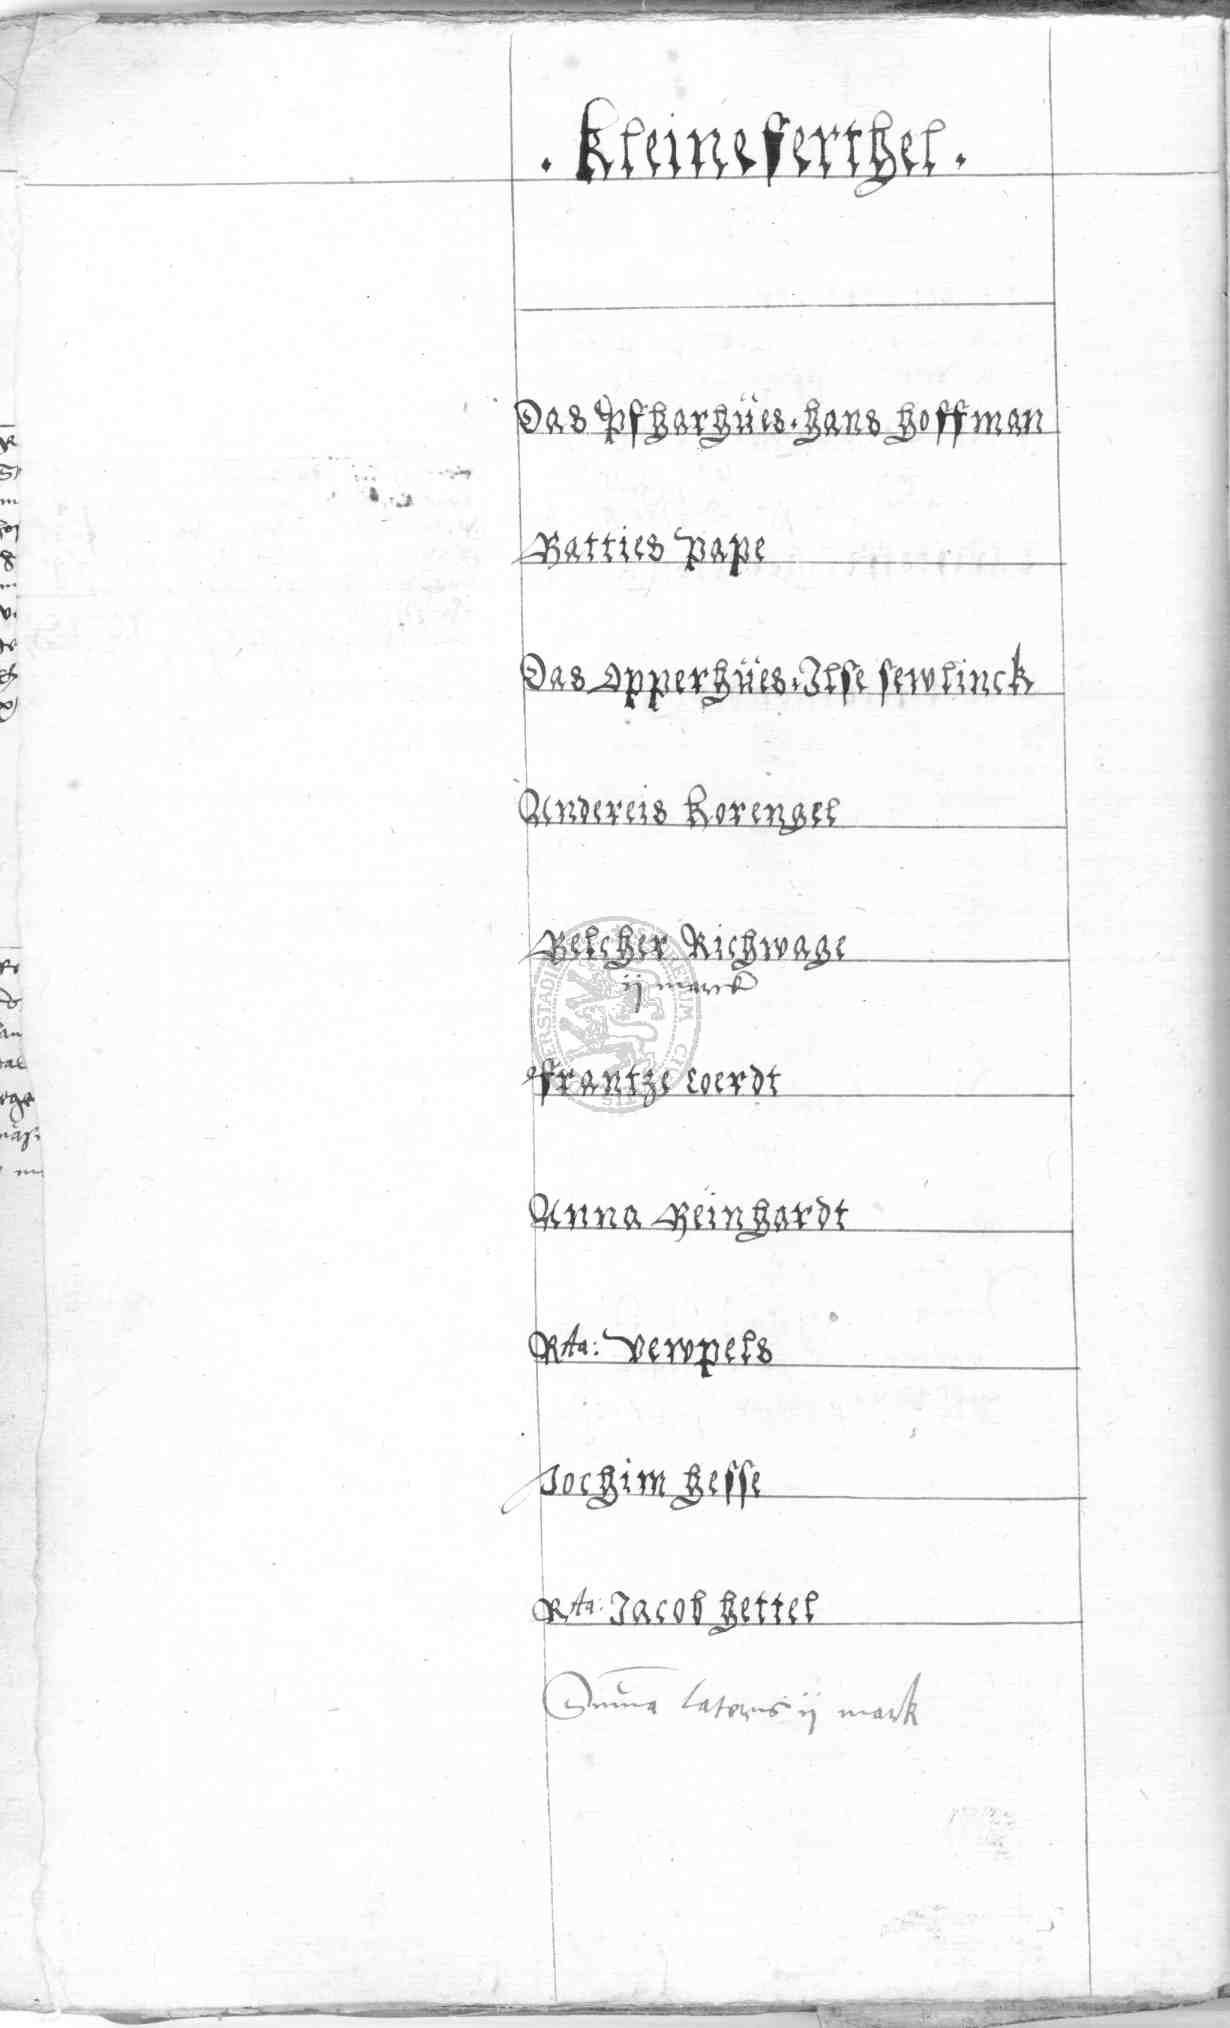 . Kleine ferthel .
Das Pfharhües . hans hoffman
Matties Pape
Das Opperhües . Ilse sewlinck
Andereis Korengel
Melcher Richwage
ij marck
Frantze Coerdt
Anna Meinhardt
Rta: Vewpels
Jochim hesse
Rta: Jacob hettel
Summa lateris ij mark